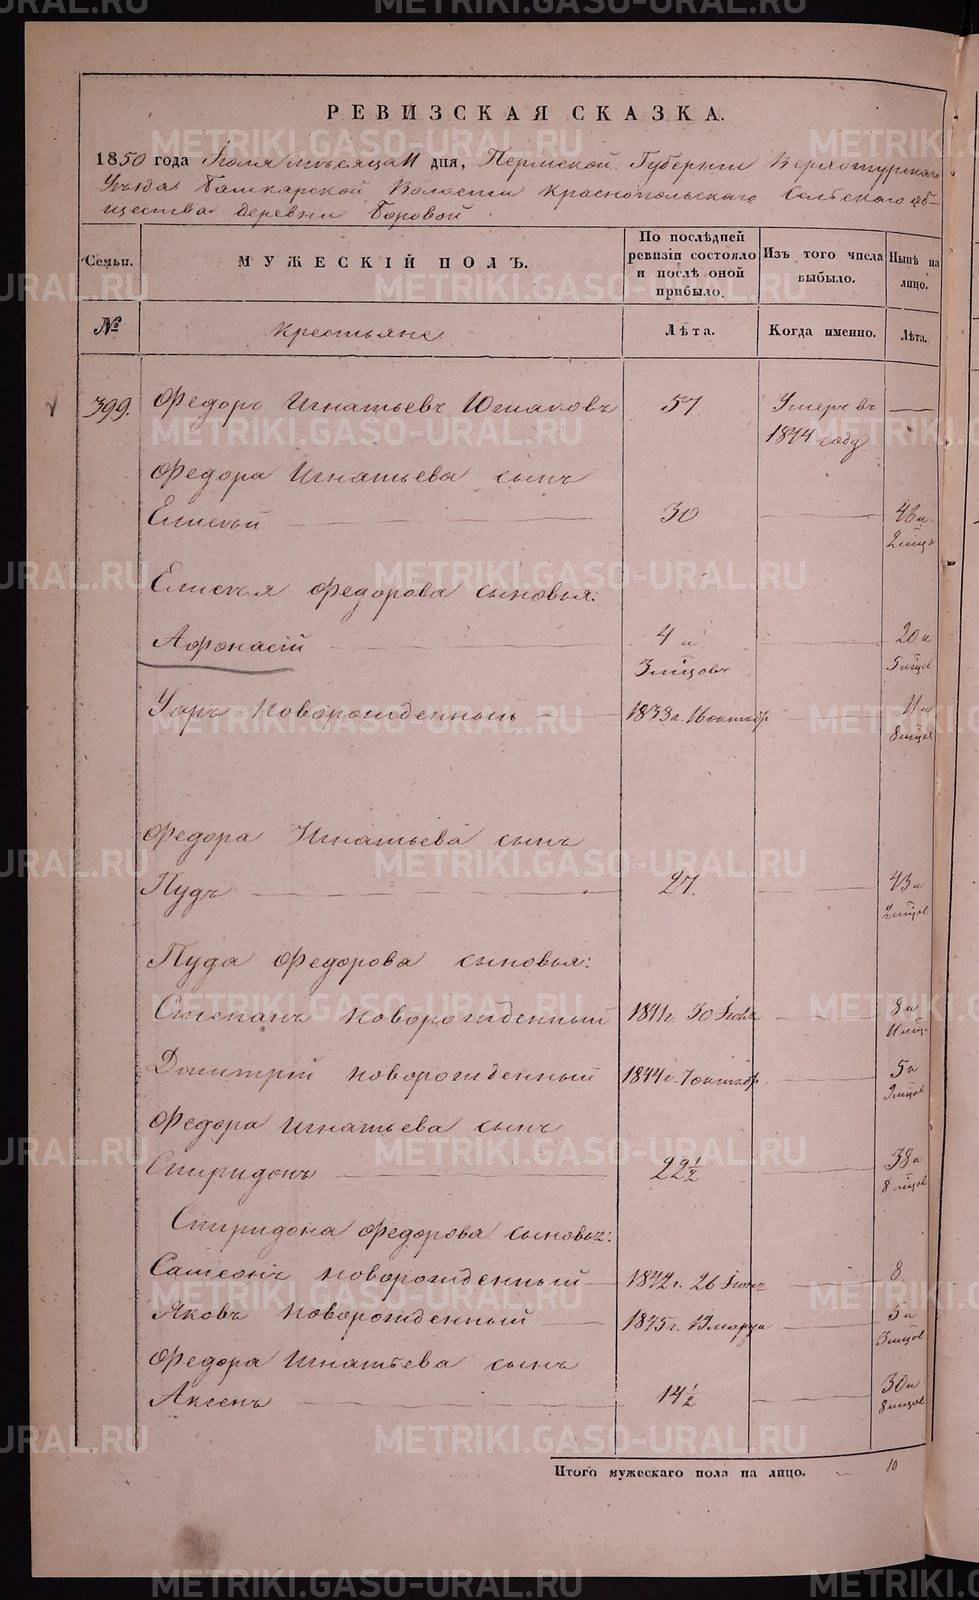 METRIKI.GASO-URAL.RU
РЕВИЗСКАЯ СКАЗКА.
1850 года Іюля мѣсяца 11 дня, Пермской Губерніи Верхотурскаго
Уѣзда Башкарской Волости Краснопольскаго Сельскаго об-
щества деревни Боровой
Семьи. МУЖЕСКІЙ ПОЛЪ. По послѣдней ревизіи состояло и послѣ оной прибыло. Изъ того числа выбыло. Нынѣ на лицо.
№ Крестьяне Лѣта. Когда именно. Лѣта.
399. Федоръ Игнатьевъ Юшаковъ 57 Умеръ въ —
1844 году
Федора Игнатьева сынъ
Елисѣй 30 46 и
2 мѣца
Елисѣя Федорова сыновья:
Афонасій 4 и 20 и
3 мѣцовъ 5 мѣцов
Уаръ новорожденный 1838 г. 16 октябр 11 и
8 мѣцов
Федора Игнатьева сынъ
Пудъ 27. 43 и
2 мѣцов
Пуда Федорова сыновья:
Степанъ новорожденный 1841 г. 30 Іюля 8 и
11 мѣц.
Дмитрій новорожденный 1844 г. 7 октябр 5 и
9 мѣцов
Федора Игнатьева сынъ
Спиридонъ 22 1/2 38 и
8 мѣцов
Спиридона Федорова сыновья:
Самсонъ новорожденный 1842 г. 26 Іюля 8
Яковъ новорожденный 1845 г. 19 марта 5 и
3 мѣцов
Федора Игнатьева сынъ
Аксенъ 14 1/2 30 и
8 мѣцов
Итого мужескаго пола на лицо. 10